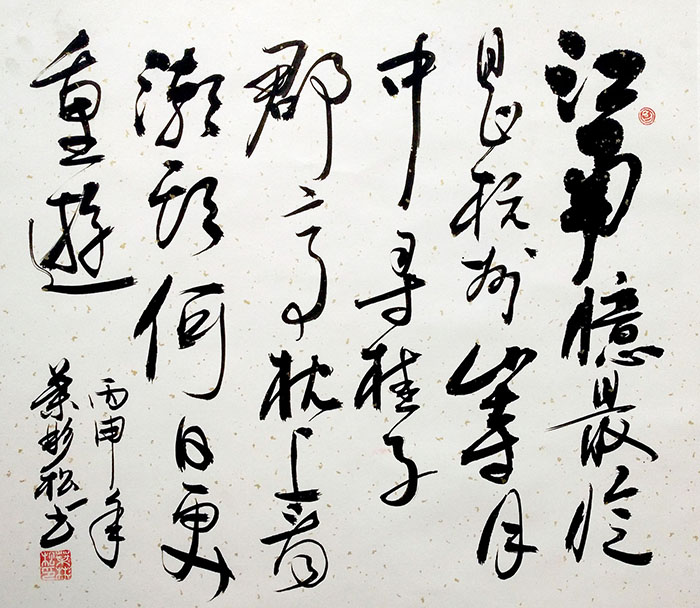 江南臆最臆
是杭州山寺月
中寻桂子
郡亭枕上看
潮頭何日更
重遊
丙申年
葉彬松书